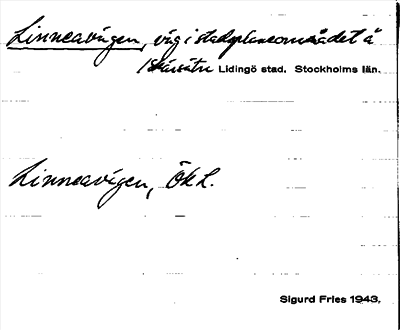 Linneavägen, väg i stadsplaneområdet å
Lidingö stad. Stockholms län.
Linneavägen, Ök L.
Sigurd Fries 1943.